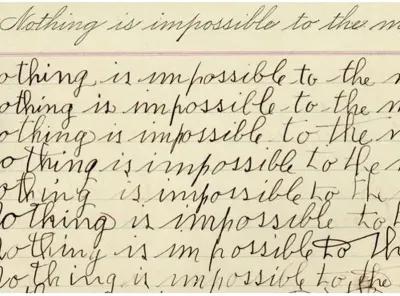 Nothing is impossible to the m
othing is impossible to the
othing is impossible to the
othing is impossible to the
othing is impossible to the
othing is impossible to the
Nothing is impossible to t
Nothing is impossible to th
No thing is impossible to the